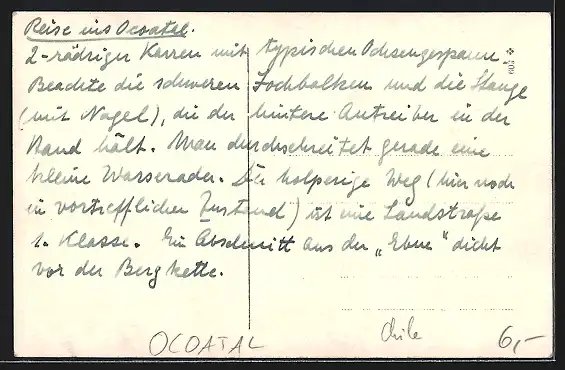 Reise ins Ocoatal.
2-rädriger Karren mit typischen Ochsengespann.
Beachte die schweren Jochbalken und die Stange
(mit Nagel), die der hintere Antreiber in der
Hand hält. Man durchschreitet gerade eine
kleine Wasserader. Der holperige Weg (hier noch
in vortrefflichen Zustand) ist eine Landstraße
1. Klasse. Ein Abschnitt aus der „Ebne“ dicht
vor der Bergkette.
OCOATAL
Chile
6,-